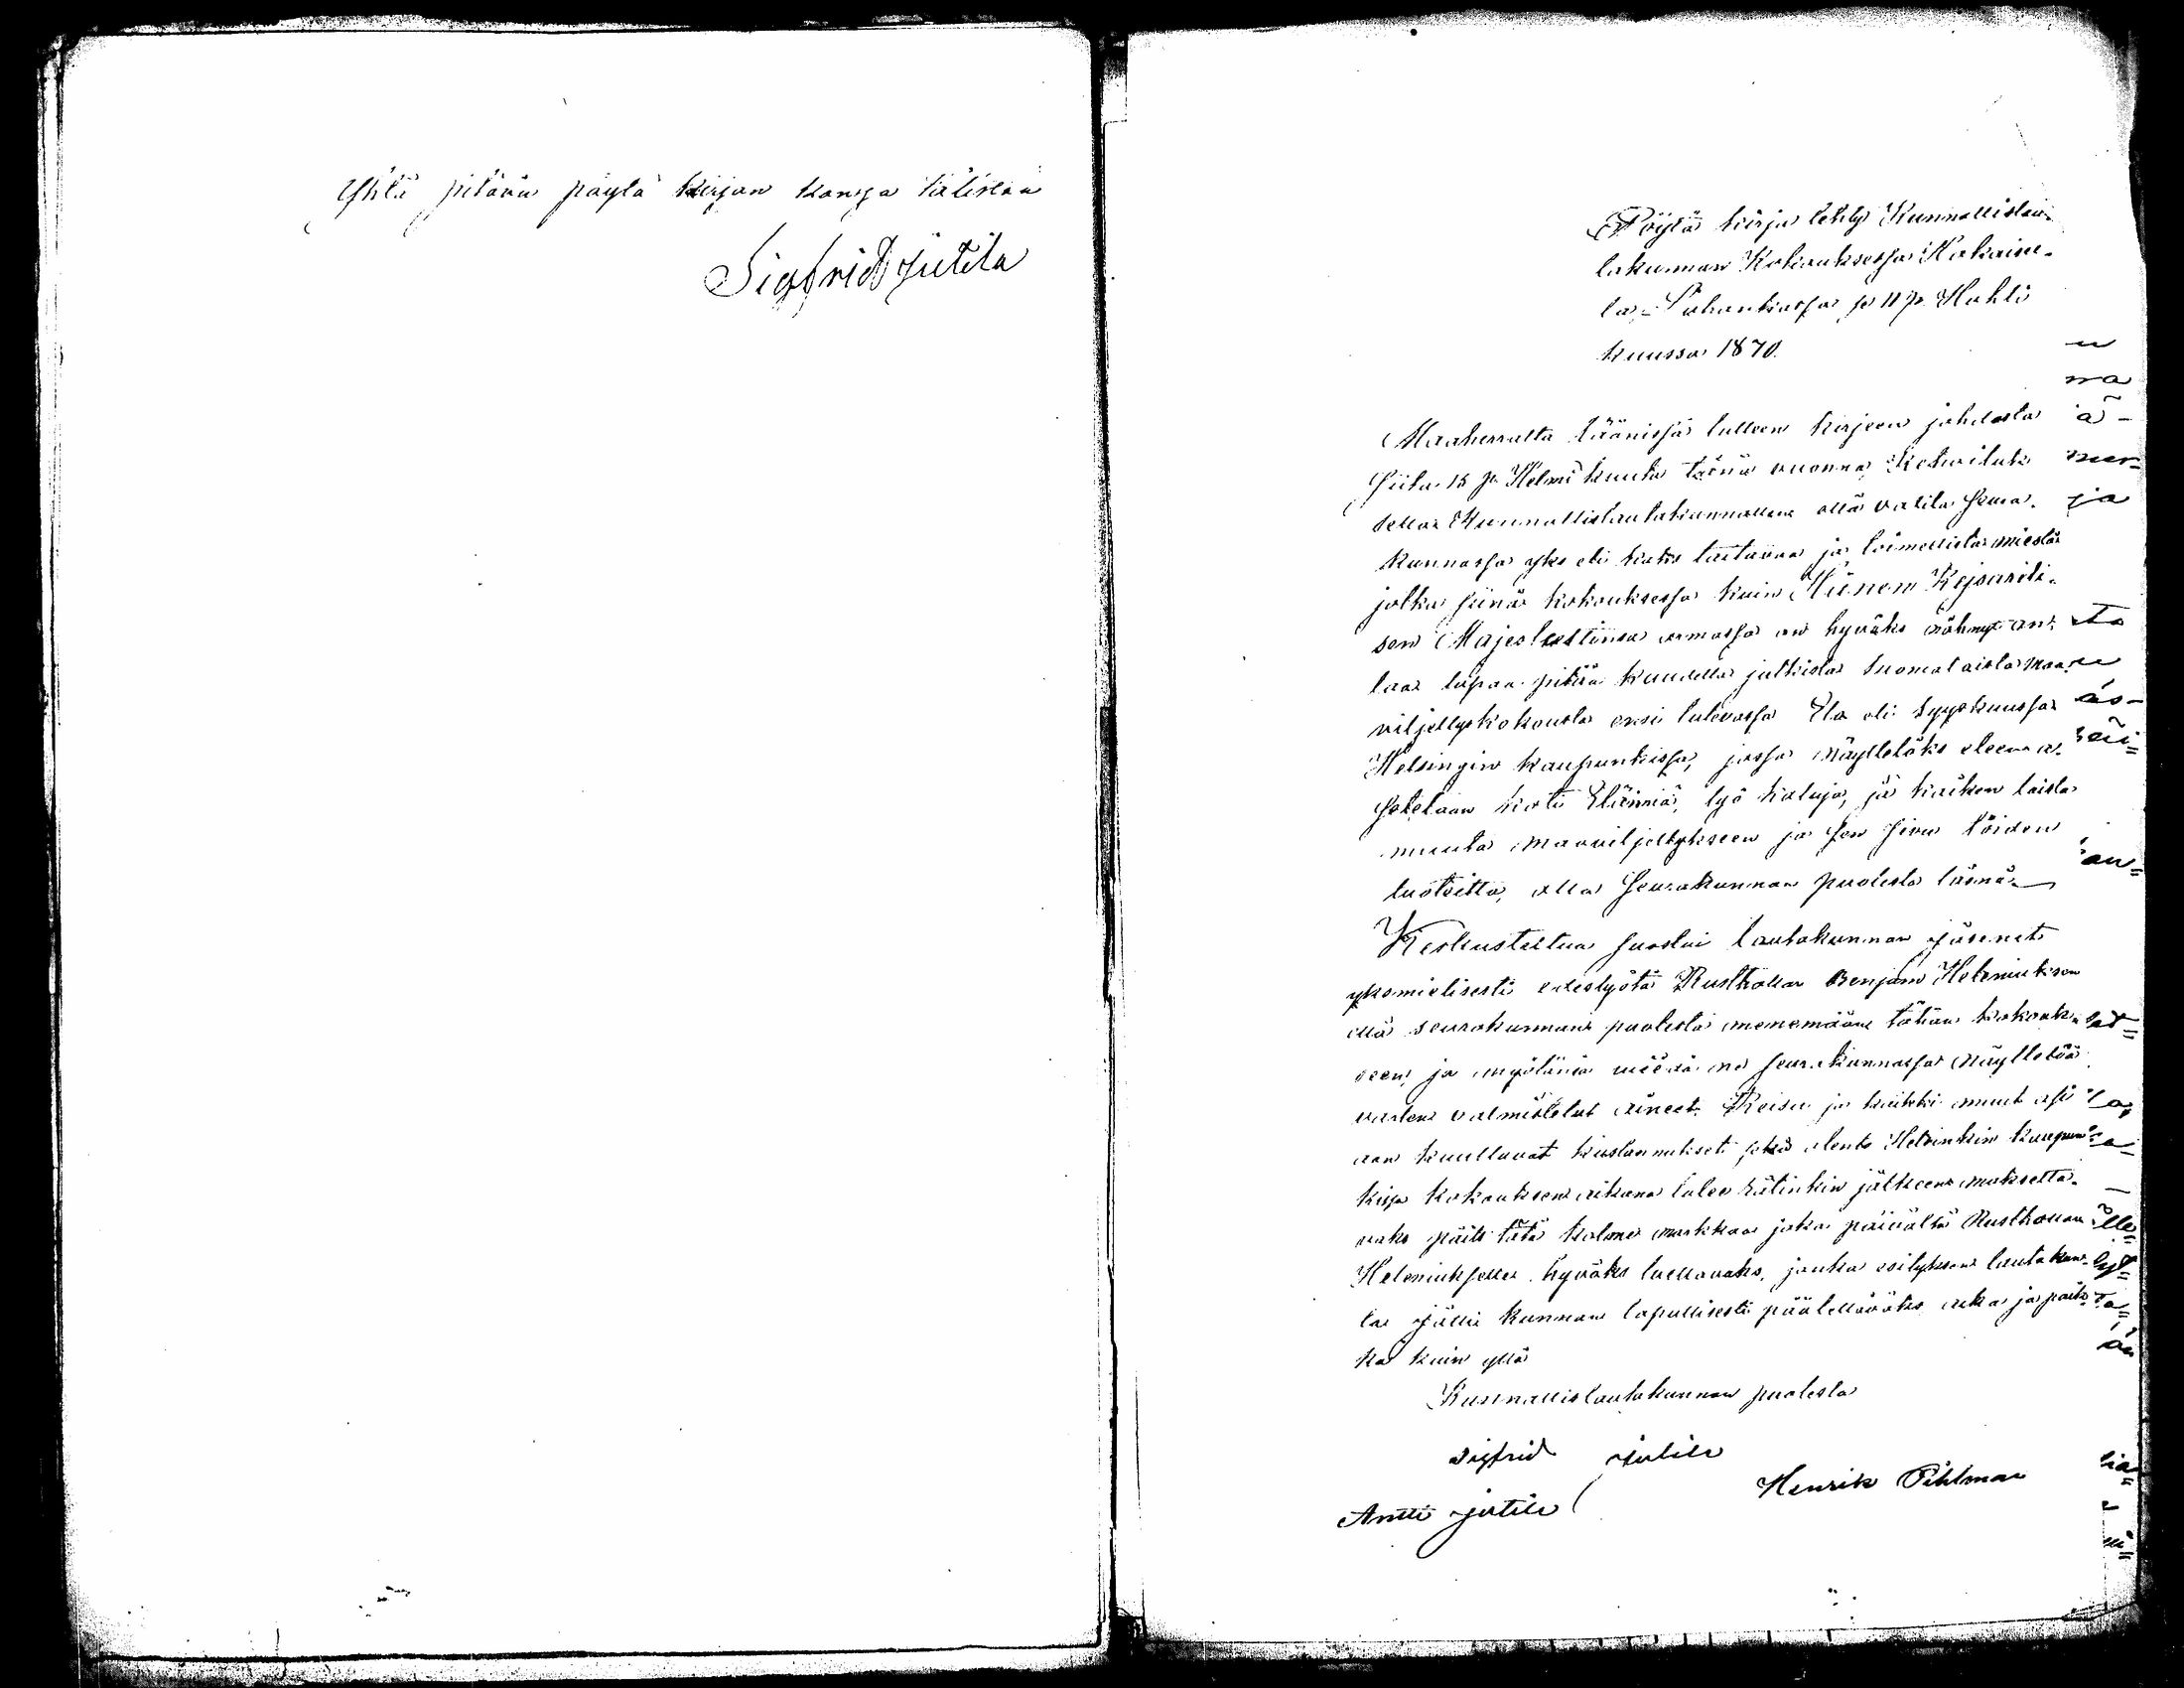 Yhtä pitävä pöytä kirjan kansa täristää
Sigfrid Jutila
Pöytä kirja tehty Kunnallislau-
takunnan Kokouksessa Kakaisu-
la Pahankiassa p 11 p. Huhti
kuussa 1870.
Maaherralta läänissä tulleen kirjeen johdosta
siitä 15 p. Helmi kuuta tänä vuonna, Kehoituk
sella Kunnallislautakunnallen että valita seura-
kunnassa yks eli kaks taitavaa ja toimellista miestä
jotka siinä kokouksessa kuin Hänen Kejsarilli-
sen Majesteetinsa armossa on hyväks nähnyt an-
taa lupaa pitää kuudetta julkista suomalaista maan
viljellyskokousta ensi tulevassa Elo eli Syyskuussa
Helsingin kaupunkissa, jossa näytteläks eteen a-
setetaan koti Eläimiä, työ kaluja, ja kaiken laista
muuta maanviljellykseen ja sen sivu töiden
tuotteitta, olla seurakunnan puolesta läsnä.
Keskusteltua suostui lautakunnan jäsenet
yksmielisesti edestyötä Rusthollar Benjam Heleniuksen
että seurakunnan puolesta menemään tähän kokouk-
seen, ja myötänsä viemän seurakunnassa näyttelöä
varten valmistetut aineet. Reisu ja kaikki muut asi
aan kuulluvat kustannukset sekä elento Helsinkin kaupun
kissa kokouksen aikana tulee rätinkin jälkeen maksetta-
vaks päits tätä kolme markkaa joka päivältä Rusthollar
Heleniukselle hyväks luettavaks, jonka esityksen lautakun-
ta jätti kunnan lopullisesti päätettävöäks aika ja paik
ka kuin yllä
Kunnallislautakunnan puolesta
Sigfrid Jutila
Henrik Pihlman
Antti Jutila